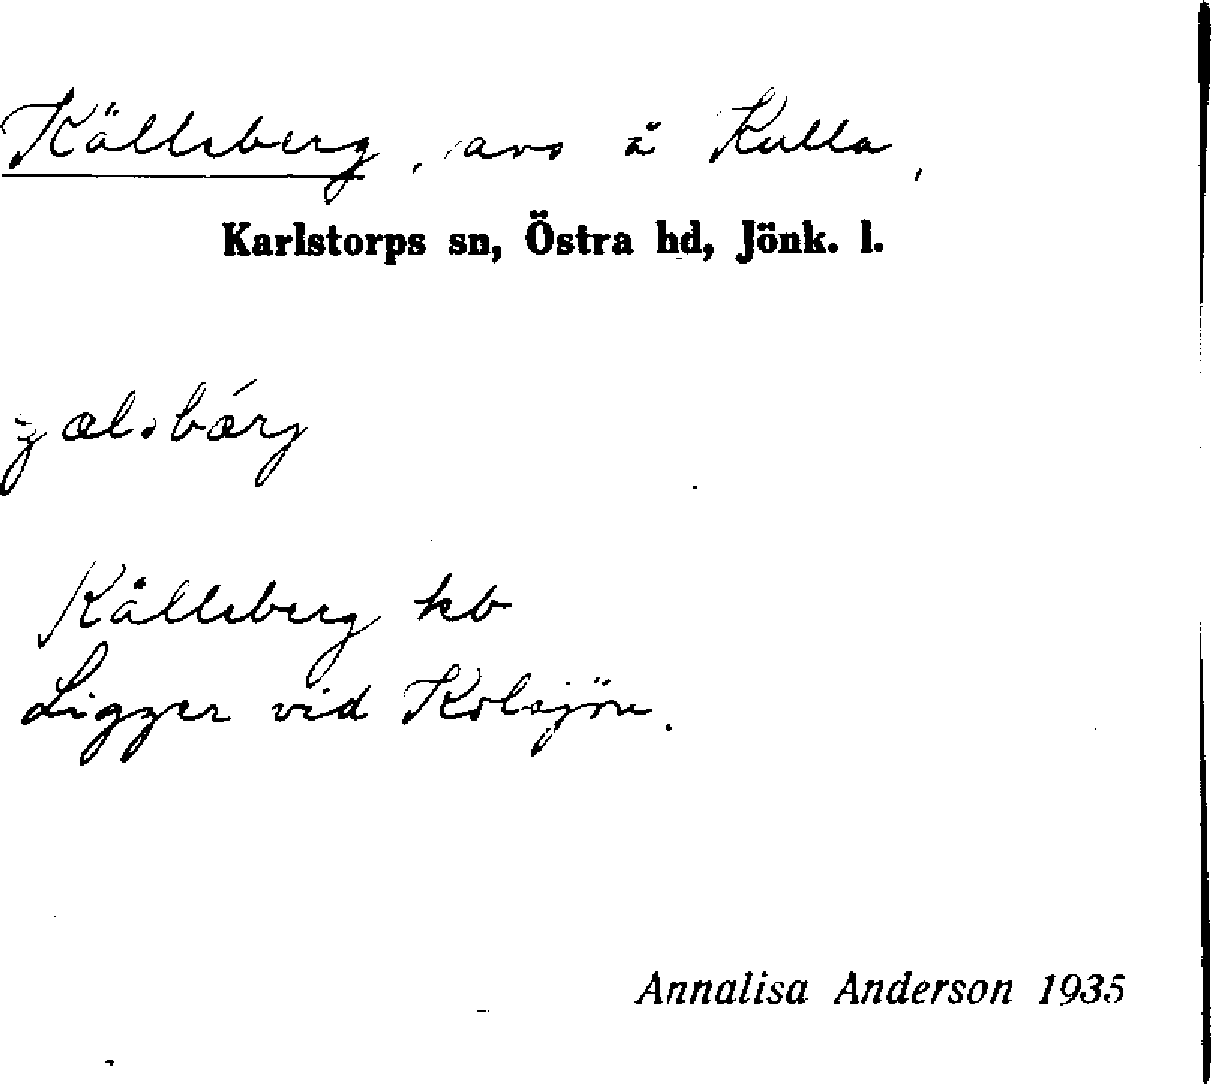 Källsberg, avs å Kulla,
Karlstorps sn, Östra hd, Jönk. l.
Källsberg kb
Ligger vid Kolsjön.
Annalisa Anderson 1935